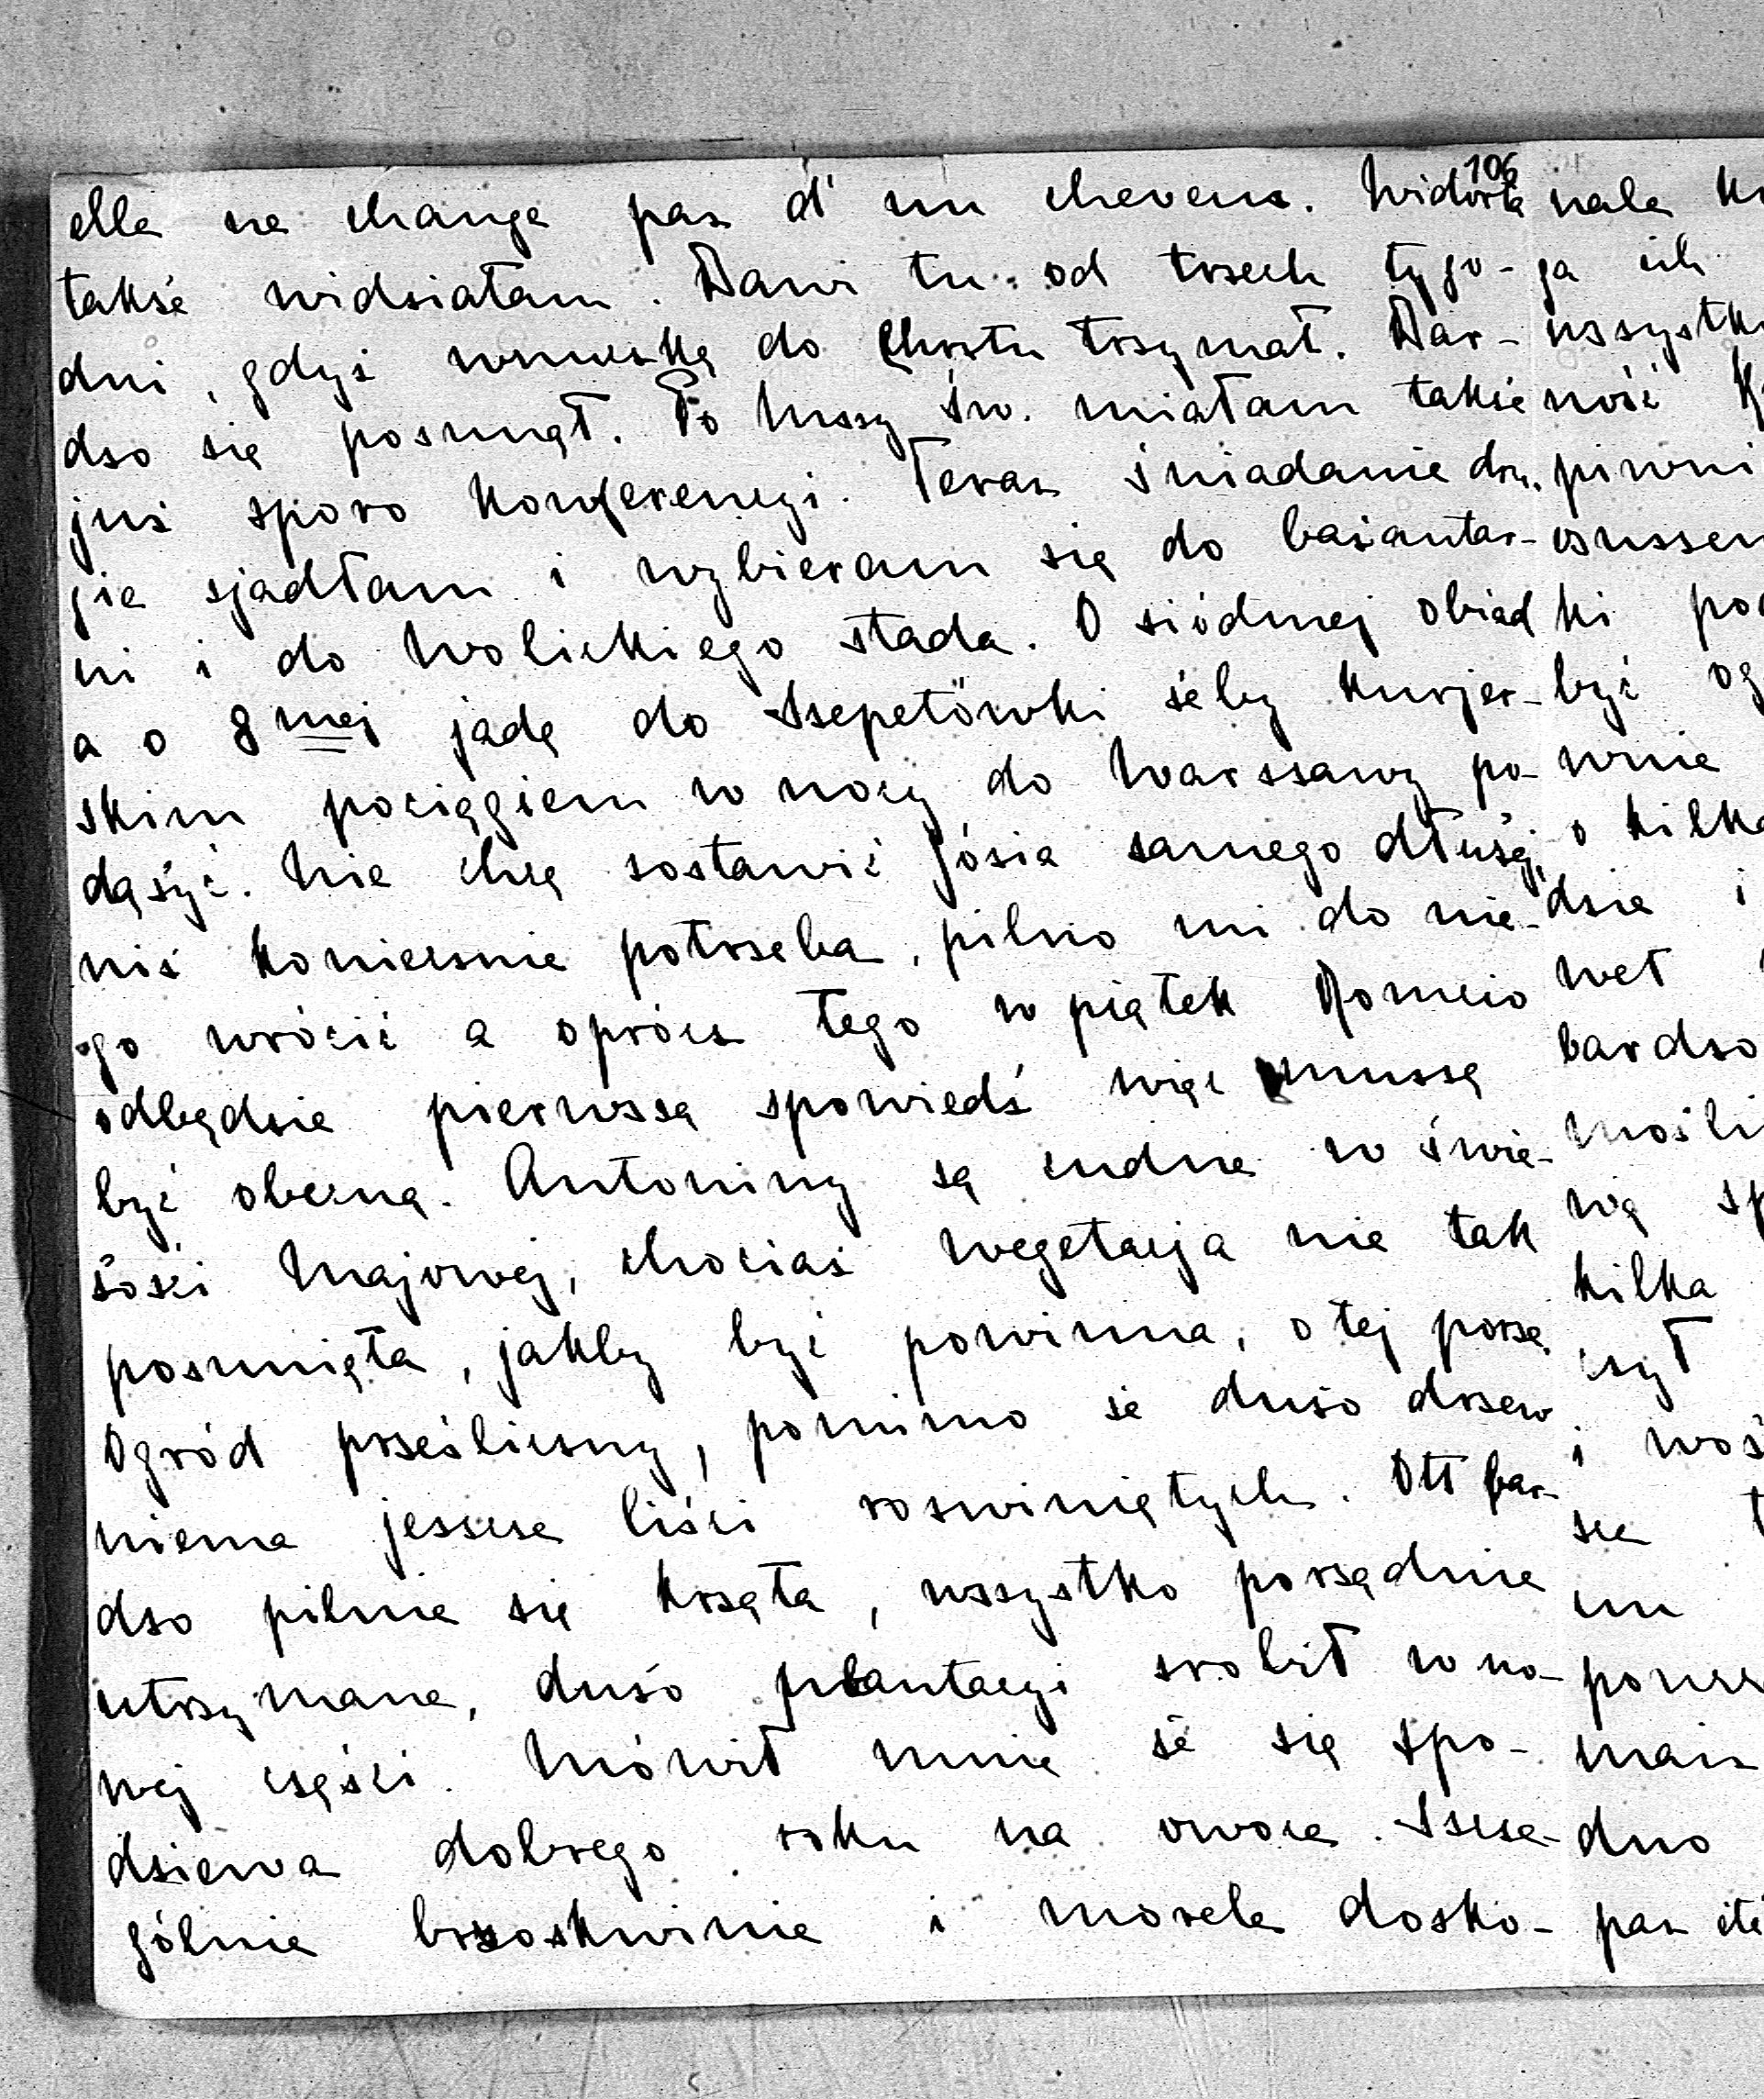 106
elle ne change pas d'un cheveux. Widorta
także widziałam. Bawi tu od trzech tygo-
dni, gdyż wnuczkę do Chrztu trzymał. Bar-
dzo się posunął. Po Mszy św. miałam także
już sporo konferencyi. Teraz śniadanie dru-
gie zjadłam i wybieram się do bażantar-
ni i do Wolickiego stada. O siódmej obiad
a o 8 mej jadę do Szepetówki żeby kurjer-
skim pociągiem w nocy do Warszawy po-
dążyć. Nie chcę zostawić Józia samego dłużej,
niż koniecznie potrzeba, pilno mi do nie-
go wrócić a oprócz tego w piątek Romcio
odbędzie pierwszą spowiedź więc muszę
być obecną. Antoniny są cudne w świe-
żości Majowej, chociaż wegetacja nie tak
posunięta, jakby być powinna, o tej porze.
Ogród prześliczny, pomimo że dużo drzew
niema jeszcze liści rozwiniętych. Ott bar-
dzo pilnie się krząta, wszystko porządnie
utrzymane, dużo plantacyi zrobił w no-
wej części. Mówił mnie że się spo-
dziewa dobrego roku na owoce. Szcze-
gólnie brzoskwinie i morele dosko-
nale
ja ich
wszystk
ność
piwni
osuszen
ki
być
wnie
o kilka
dzie i
wet
bardzo
możli
wą
kilka
czył
i
sce
im
mais
dno
pas été